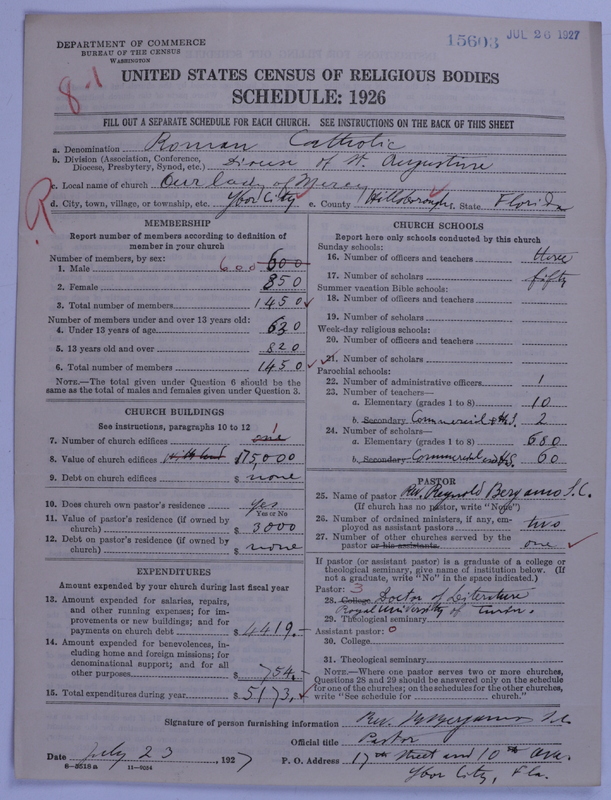 DEPARTMENT OF COMMERCE
BUREAU OF THE CENSUS
WASHINGTON
15603 JUL 26 1927
8-1
UNITED STATES CENSUS OF RELIGIOUS BODIES
SCHEDULE: 1926
FILL OUT A SEPARATE SCHEDULE FOR EACH CHURCH. SEE INSTRUCTIONS ON THE BACK OF THIS SHEET
a. Denomination Roman Catholic
b. Division (Association, Conference, Diocese, Presbytery, Synod, etc.) Diocese of St. Augustine
c. Local name of church Our lady of Mercy
d. City, town, village, or township, etc. Ybor City e. County Hillsborough f. State Florida
R
MEMBERSHIP
Report number of members according to definition of member in your church
Number of members, by sex:
1. Male 600 600
2. Female 850
3. Total number of members 1450
Number of members under and over 13 years old:
4. Under 13 years of age 630
5. 13 years old and over 820
6. Total number of members 1450
NOTE.—The total given under Question 6 should be the same as the total of males and females given under Question 3.
CHURCH BUILDINGS
See instructions, paragraphs 10 to 12
7. Number of church edifices one 1
8. Value of church edifices with land $75,000
9. Debt on church edifices $ none
10. Does church own pastor's residence yes
Yes or No
11. Value of pastor's residence (if owned by church) $ 3000
12. Debt on pastor's residence (if owned by church) $ none
EXPENDITURES
Amount expended by your church during last fiscal year
13. Amount expended for salaries, repairs, and other running expenses; for improvements or new buildings; and for payments on church debt $ 4419.-
14. Amount expended for benevolences, including home and foreign missions; for denominational support; and for all other purposes $ 754.-
15. Total expenditures during year $ 5173.
CHURCH SCHOOLS
Report here only schools conducted by this church
Sunday schools:
16. Number of officers and teachers three
17. Number of scholars fifty
Summer vacation Bible schools:
18. Number of officers and teachers
19. Number of scholars
Week-day religious schools:
20. Number of officers and teachers
21. Number of scholars
Parochial schools:
22. Number of administrative officers 1
23. Number of teachers—
a. Elementary (grades 1 to 8) 10
b. Secondary Commercial & H.S. 2
24. Number of scholars—
a. Elementary (grades 1 to 8) 680
b. Secondary Commercial and H.S. 60
PASTOR
25. Name of pastor Rev. Reynold Bergamo S.C.
(If church has no pastor, write "None")
26. Number of ordained ministers, if any, employed as assistant pastors two
27. Number of other churches served by the pastor or his assistants one
If pastor (or assistant pastor) is a graduate of a college or theological seminary, give name of institution below. (If not a graduate, write "No" in the space indicated.)
Pastor: 3
28. College Doctor of Literature
Royal University of Turin.
29. Theological seminary
Assistant pastor: 0
30. College
31. Theological seminary
NOTE.—Where one pastor serves two or more churches, Questions 28 and 29 should be answered only on the schedule for one of the churches; on the schedules for the other churches, write "See schedule for church."
Signature of person furnishing information Rev. R Bergamo S.C.
Official title Pastor
Date July 23 1927 P. O. Address 17th Street and 10th Ave.
Ybor City, Fla.
8-5518a 11-9024